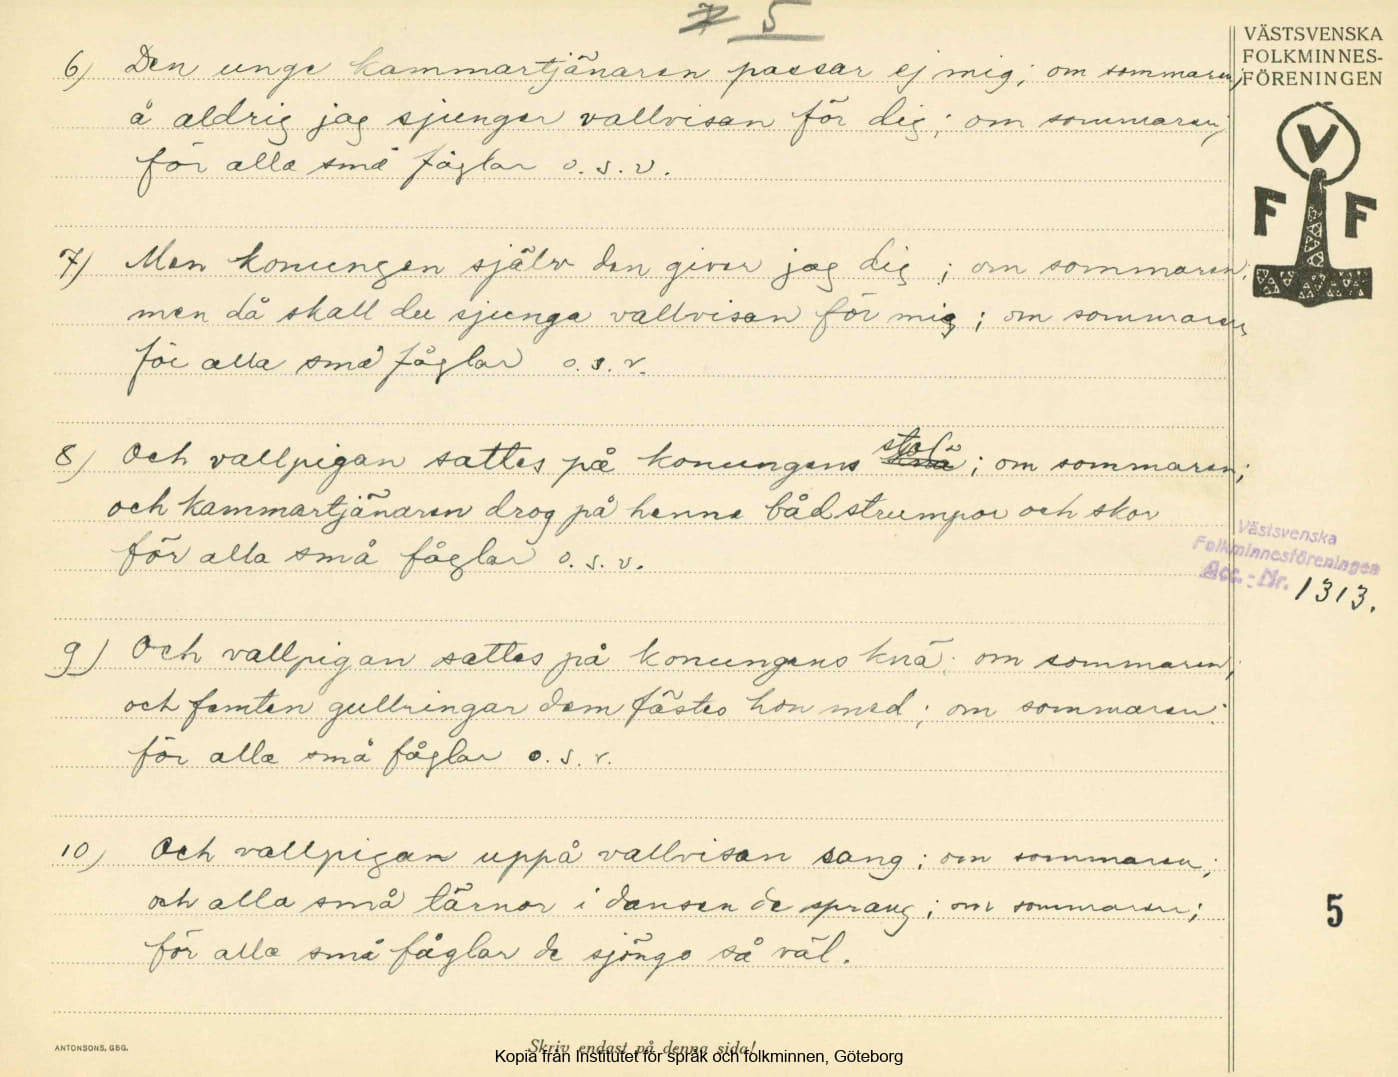 5
VÄSTSVENSKA
FOLKMINNES-
FÖRENINGEN
V
F F
6) Den unge kammartjänaren passar ej mig; om sommaren;
å aldrig jag sjunger vallvisan för dig; om sommaren;
för alla små fåglar o.s.v.
7) Men konungen själv den giver jag dig; om sommaren;
men då skall du sjunga vallvisan för mig; om sommaren
för alla små fåglar o.s.v.
8) Och vallpigan sattes på konungens knä stol; om sommaren;
och kammartjänaren drog på henne båd strumpor och skor
för alla små fåglar o.s.v.
Västsvenska
Folkminnesföreningen
Acc.-Nr. 1313.
9) Och vallpigan sattes på konungens knä; om sommaren;
och femten gullringar dem fästes hon med; om sommaren;
för alla små fåglar o.s.v.
10) Och vallpigan uppå vallvisan sang; om sommaren;
och alla små tärnor i dansen de sprang; om sommaren;
för alla små fåglar de sjöngo så väl.
5
ANTONSONS, GBG.
Skriv endast på denna sida!
Kopia från Institutet för språk och folkminnen, Göteborg